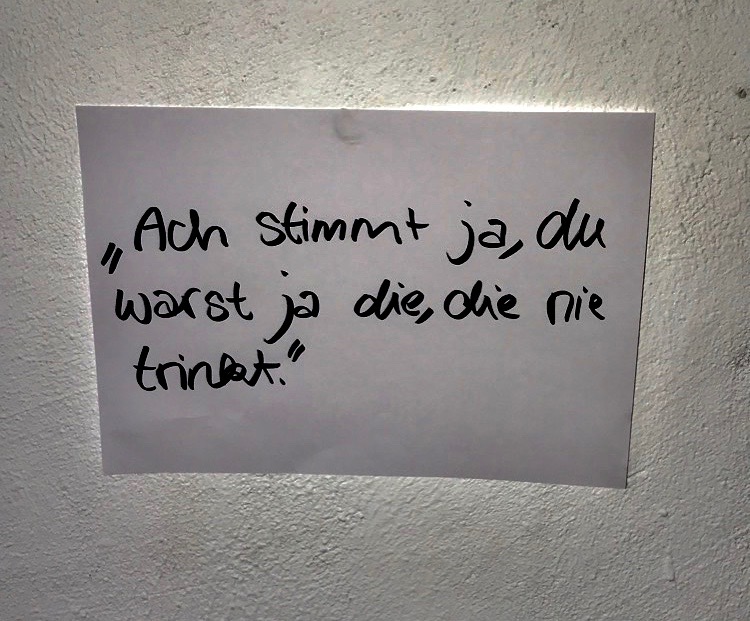 „Ach stimmt ja, du
warst ja die, die nie
trinkt.“